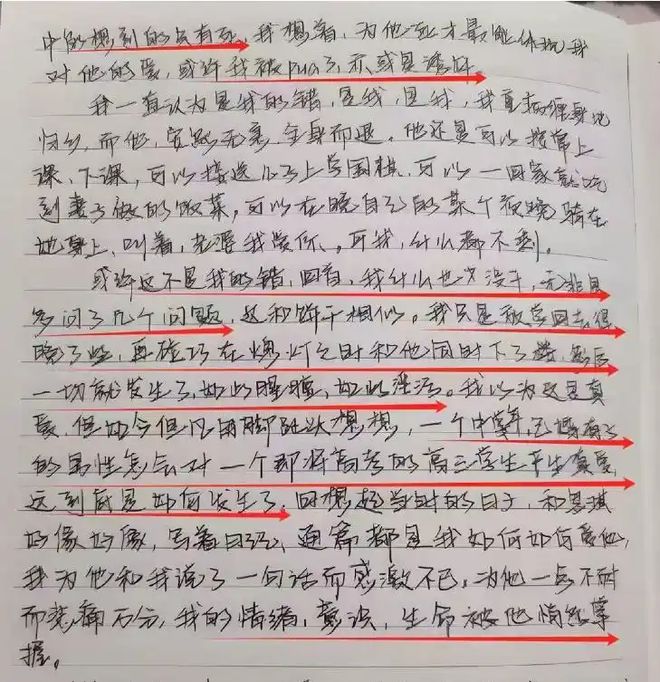 中的想到的只有死，我想着，为他死才最能体现我
对他的爱，或许我被pua了，亦或是
我一直认为是我的错，是我，是我，我
而他，安然无恙，全身而退。他还是可以接常上
课，下课，可以接送儿子上学围棋，可以一回家就吃
到妻子做的饭菜，可以在晚自己的某个夜晚骑在
她身上，叫着，老婆我爱你。可我，什么都不剩。
或许这不是我的错，回看，我什么也没干，无非是
多问了几个问题，这和饼干相似。我只是教学回去得
晚了些，再碰巧在熄灯之时和他同时下了楼，然后
一切就发生了，如此，如此淫泻。我以为这是真
爱，但如今但凡用脚趾头想想，一个中年，已婚有子
的男性怎么对一个即将高考的高三学生产生真爱，
这到底是如何发生了，回想起当时的日子，和思琪
好像好像，写着日记，通篇都是我如何如何爱他，
我为他和我说了一句话而感激不已，为他一点不耐
而悲痛万分，我的情绪，意识，生命被他悄然掌
握。